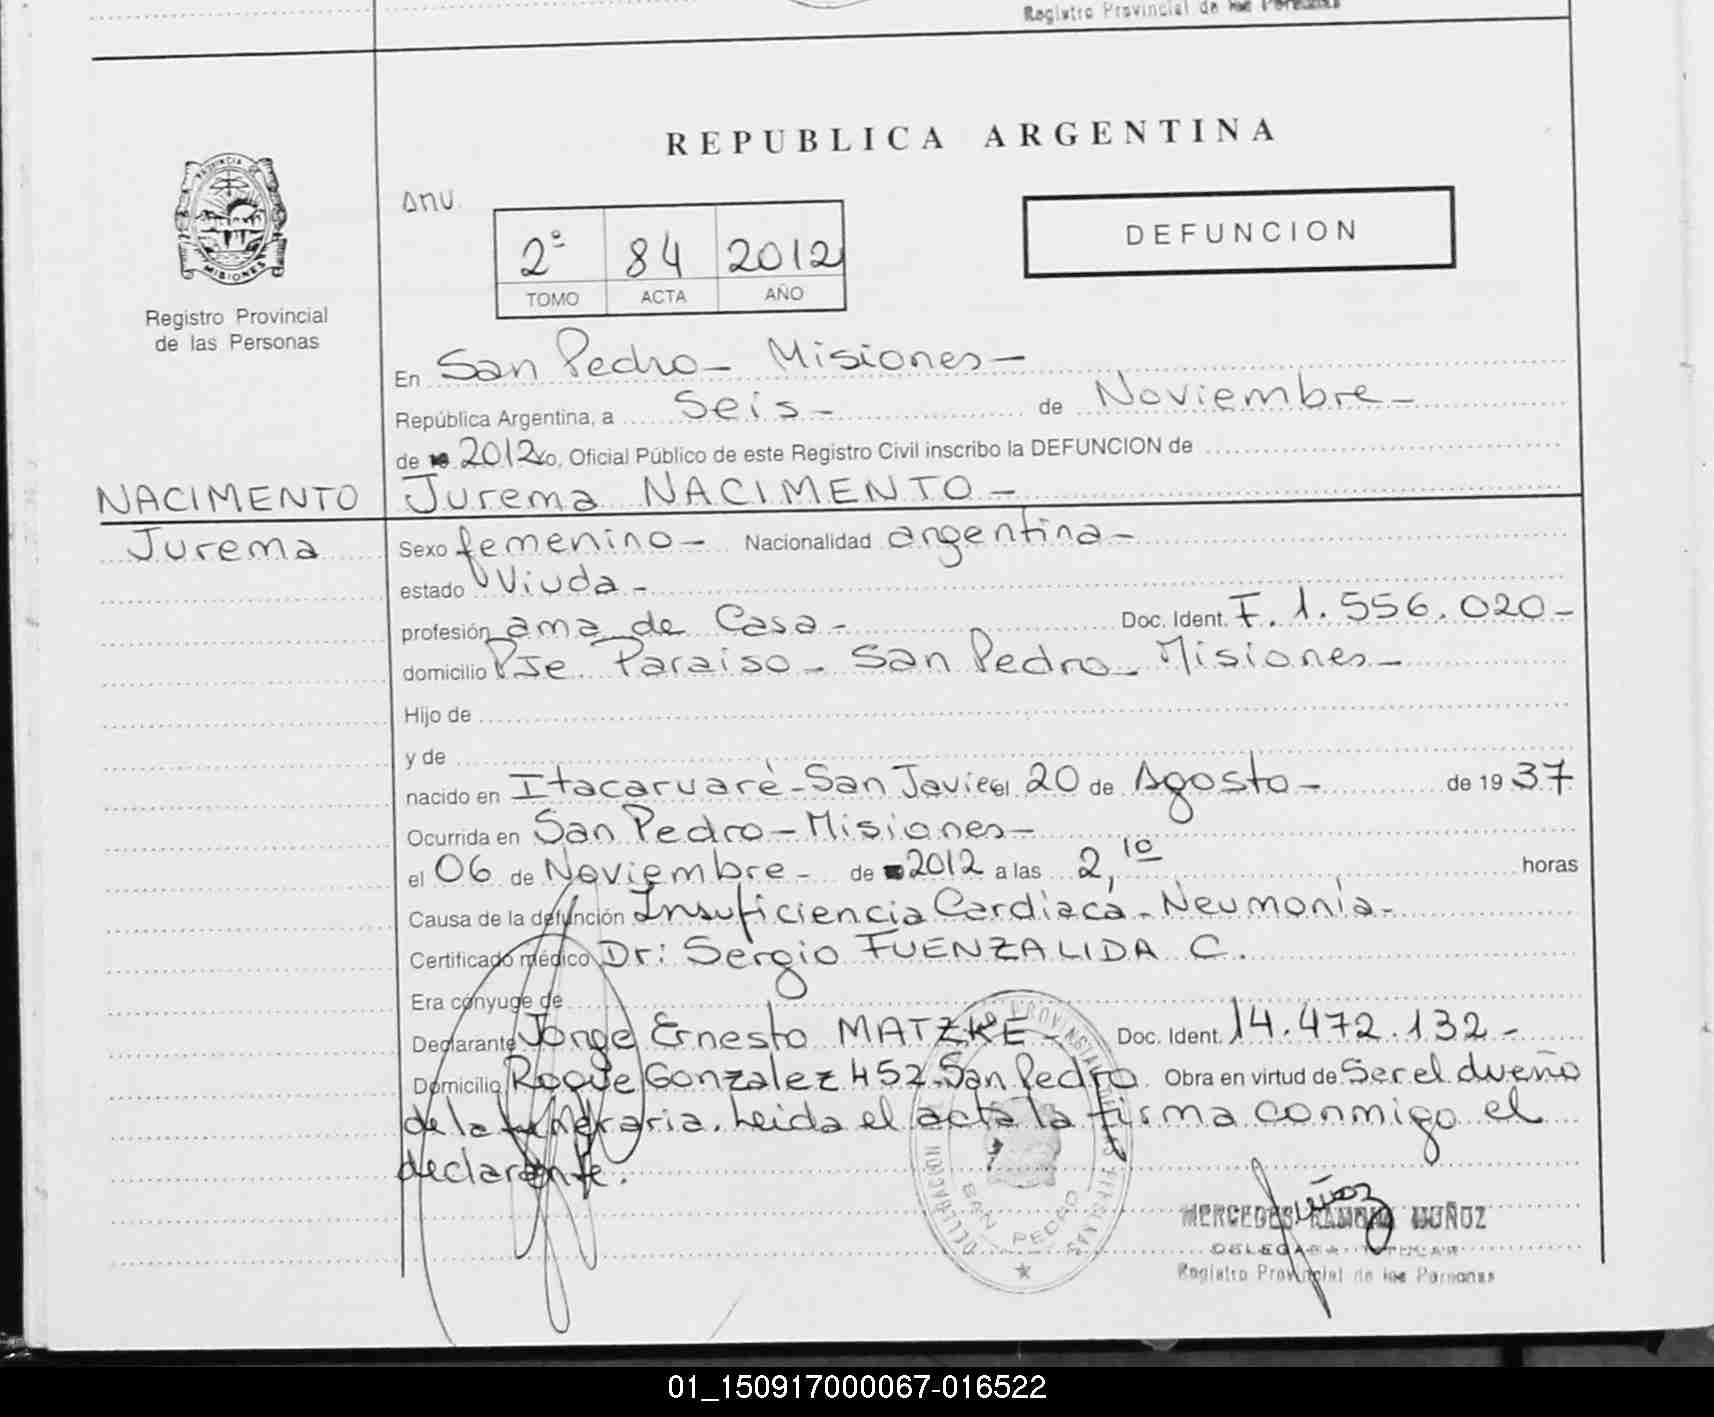 Registro Provincial de las Personas
REPUBLICA ARGENTINA
PROVINCIA DE
MISIONES
Registro Provincial
de las Personas
ANV.
2º 84 2012
TOMO ACTA AÑO
DEFUNCION
En San Pedro - Misiones -
República Argentina, a Seis - de Noviembre -
de 2012 yo, Oficial Público de este Registro Civil inscribo la DEFUNCION de
NACIMENTO Jurema NACIMENTO -
Jurema Sexo femenino - Nacionalidad argentina -
estado Viuda -
profesión ama de Casa - Doc. Ident. F. 1.556.020 -
domicilio Pje Paraiso - San Pedro - Misiones -
Hijo de
y de
nacido en Itacaruaré - San Javier el 20 de Agosto - de 19 37
Ocurrida en San Pedro - Misiones -
el 06 de Noviembre - de 2012 a las 2,10 horas
Causa de la defunción Insuficiencia Cardiaca - Neumonía -
Certificado médico Dr: Sergio FUENZALIDA C.
Era cónyuge de
Declarante Jorge Ernesto MATZKE - Doc. Ident. 14.472.132 -
Domicilio Roque Gonzalez 452 - San Pedro Obra en virtud de Ser el dueño
de la funeraria. Leida el acta la firma conmigo el
declarante.
SAN PEDRO
Muñoz
MERCEDES RAMONA MUÑOZ
DELEGADA TITULAR
Registro Provincial de las Personas
01_150917000067-016522